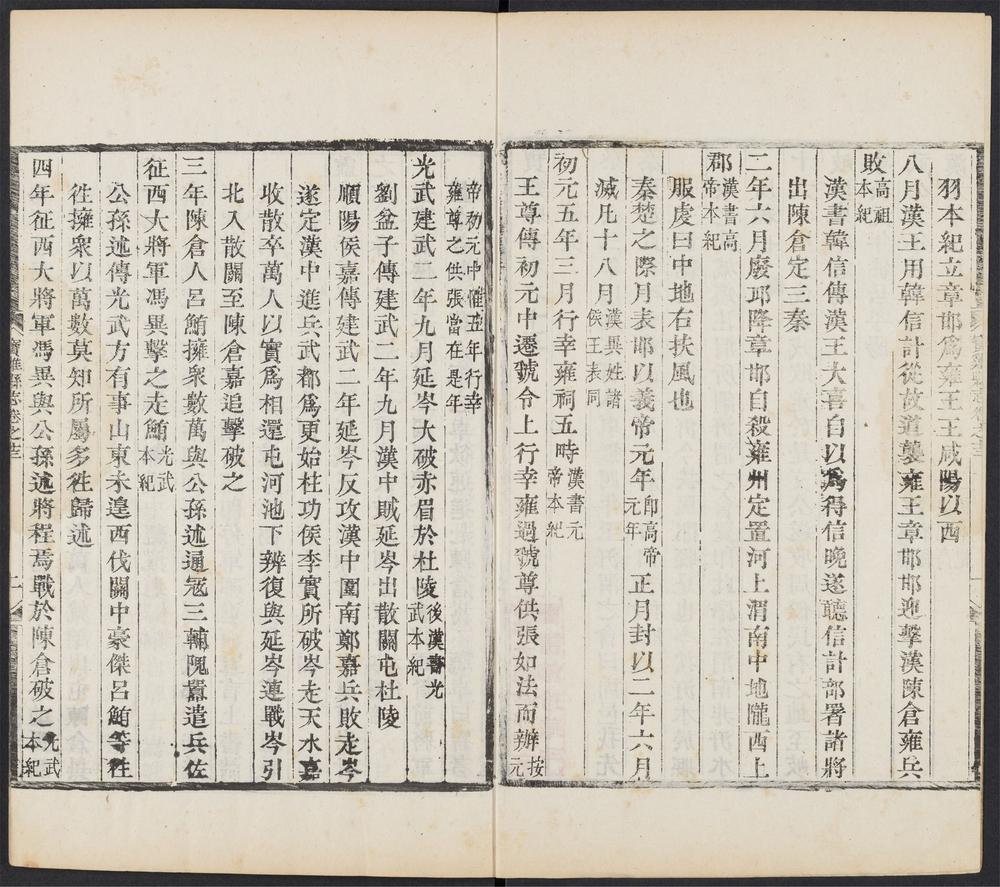 羽本紀立章邯爲雍王王咸陽以西
八月漢王用韓信計從故道襲雍王章邯邯迎擊漢陳倉雍兵
敗高祖本紀
漢書韓信傳漢王大喜自以爲得信晚遂聽信計部署諸將
出陳倉定三秦
二年六月廢邱降章邯自殺雍州定置河上渭南中地隴西上
郡漢書高帝本紀
服虔曰中地右扶風也
秦楚之際月表邯以義帝元年卽高帝元年正月封以二年六月
滅凡十八月漢異姓諸侯王表同
初元五年三月行幸雍祠五畤漢書元帝本紀
王尊傳初元中遷虢令上行幸雍過虢尊供張如法而辦按元
帝初元中惟五年行幸雍尊之供張當在是年
光武建武二年九月延岑大破赤眉於杜陵後漢書光武本紀
劉盆子傳建武二年九月漢中賊延岑出散關屯杜陵
順陽侯嘉傳建武二年延岑反攻漢中圍南鄭嘉兵敗走岑
遂定漢中進兵武都爲更始柱功侯李寶所破岑走天水嘉
收散卒萬人以寶爲相還屯河池下辨復與延岑連戰岑引
北入散關至陳倉嘉追擊破之
三年陳倉人呂鮪擁衆數萬與公孫述通寇三輔隗囂遣兵佐
征西大將軍馮異擊之走鮪光武本紀
公孫述傳光武方有事山東未遑西伐關中豪傑呂鮪等往
往擁衆以萬數莫知所屬多往歸述
四年征西大將軍馮異與公孫述將程焉戰於陳倉破之光武本紀
寶雞縣志卷之三